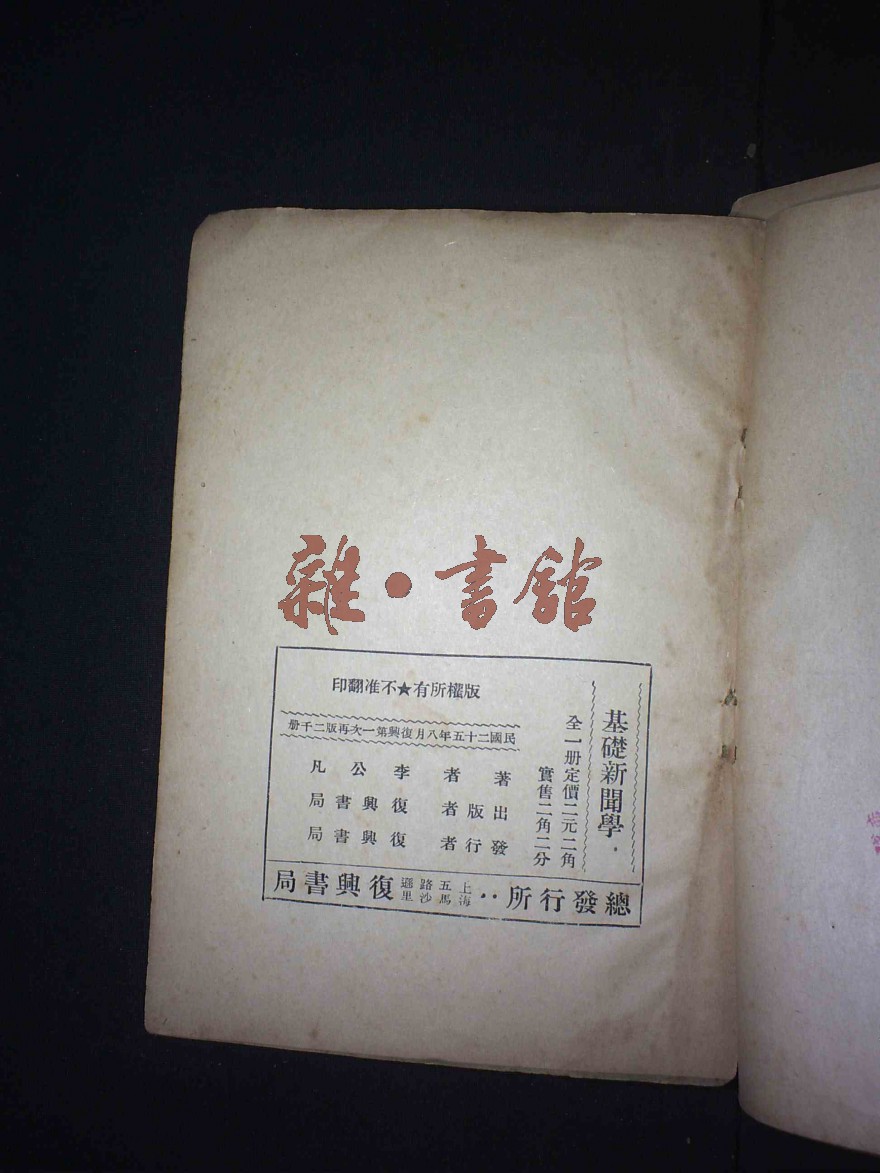 雜·書館
基礎新聞學
全一册定價二元二角
實售二角二分
版權所有★不准翻印
民國二十五年八月復興第一次再版二千册
著者 李公凡
出版者 復興書局
發行者 復興書局
總發行所：上海五馬路沙遜里 復興書局